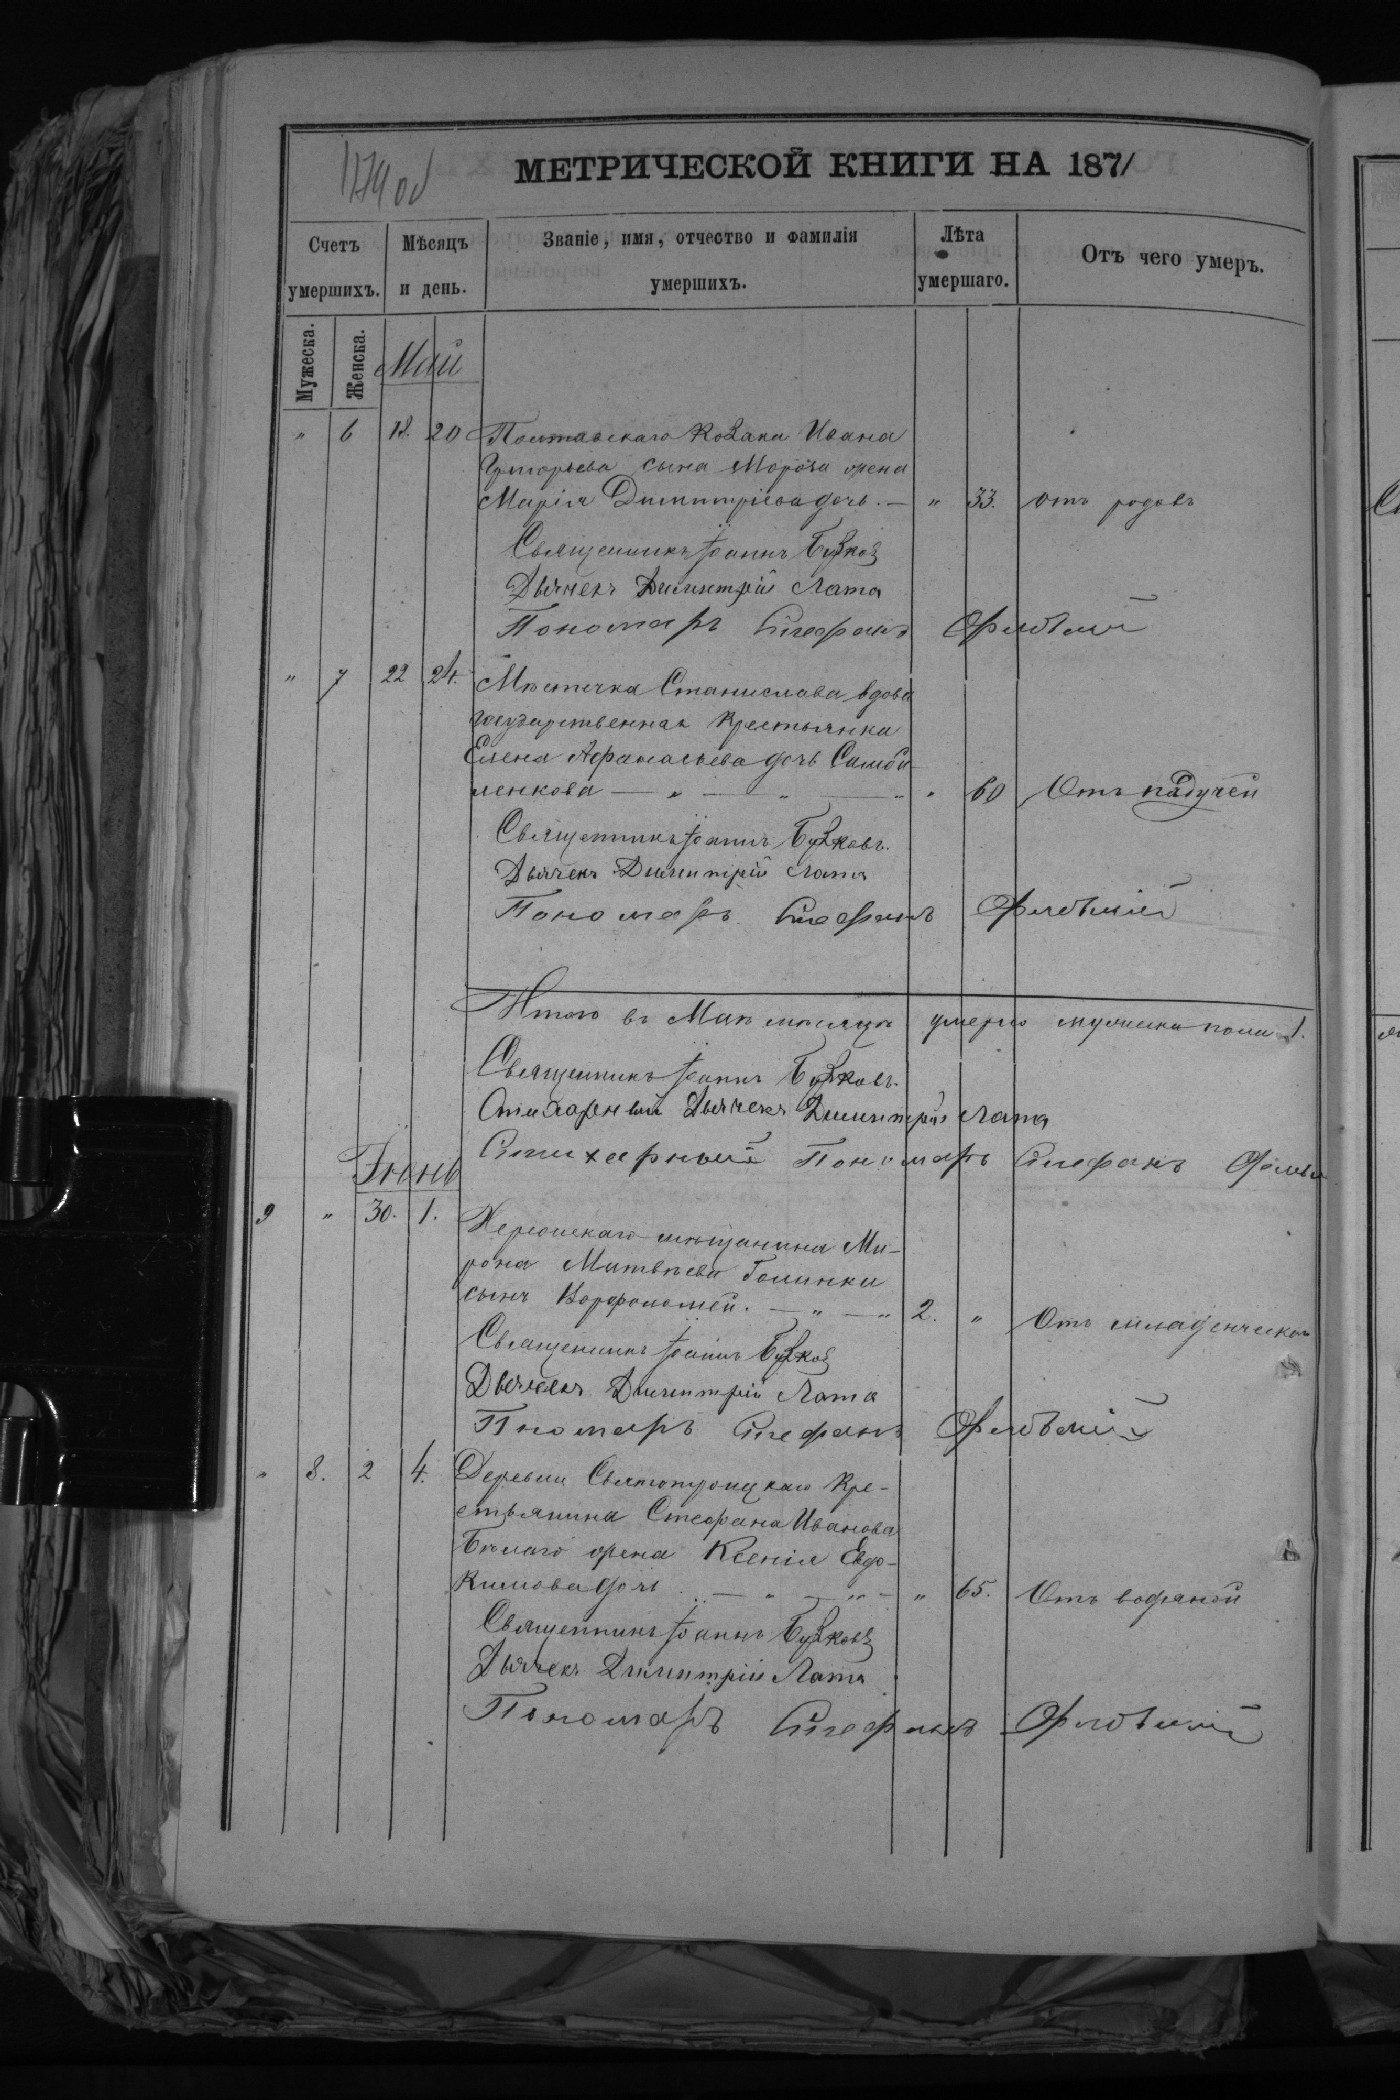 1174 об
МЕТРИЧЕСКОЙ КНИГИ НА 1871
Счетъ умершихъ.
Мѣсяцъ и день.
Званіе, имя, отчество и фамилія умершихъ.
Лѣта умершаго.
Отъ чего умеръ.
Мужеска.
Женска.
Май
" 6 18. 20 Полтавскаго козака Ивана
Григорьева сына Мороза жена
Марія Димитріева дочь. — " 33. отъ родовъ
Священникъ Іоаннъ
Дьячекъ Димитрій Лата
Пономарь Стефанъ
" 7 22 24. Мѣстечка Станислава вдова
государственная крестьянка
Елена Афанасьева дочь
ленкова — " — " — " " 60 Отъ падучей
Священникъ Іоаннъ
Дьячекъ Димитрій Лата
Пономарь Стефанъ
Итого въ Маѣ мѣсяцѣ умерло мужеска пола 1.
Священникъ Іоаннъ
Стихарный Дьячекъ Димитрій Лата
Стихарный Пономарь Стефанъ
Іюнь
9 " 30. 1. Херсонскаго мѣщанина Ми-
рона Матвѣева Голинки
сынъ Ворфоломей. — " — " 2. " Отъ младенческой
Священникъ Іоаннъ
Дьячекъ Димитрій Лата
Пномарь Стефанъ
" 8. 2 4. Деревни Святотроицкаго кре-
стьянина Стефана Иванова
Бѣлаго жена Ксенія Евдо-
кимова дочь — " — " — " 65. Отъ водяной
Священникъ Іоаннъ
Дьячекъ Димитрій Лата
Пономарь Стефанъ